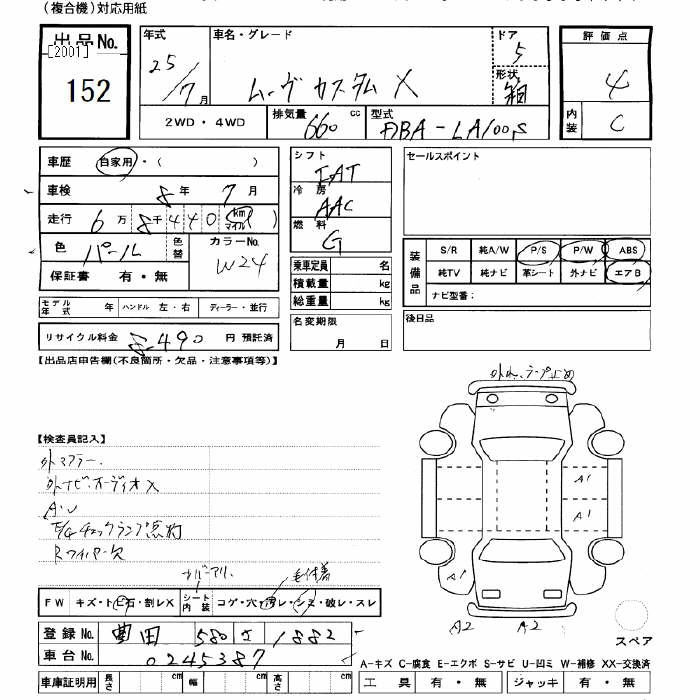 (複合機)対応用紙
出品No.
[2001]
152
年式
25/7月
車名・グレード
ムーヴ カスタム X
ドア
5
形状
箱
評価点
4
内装
C
2WD・4WD
排気量 660 cc
型式 DBA-LA100S
車歴 自家用・( )
車検 8年 7月
走行 6万 8千440 km マイル
色 パール
色替
カラーNo.
W24
保証書 有・無
モデル年式 年 ハンドル 左・右 ディーラー・並行
リサイクル料金 8490 円 預託済
シフト
FAT
冷房
AAC
燃料
G
乗車定員 名
積載量 kg
総重量 kg
名変期限
月 日
セールスポイント
装備品
S/R 純A/W P/S P/W ABS
純TV 純ナビ 革シート 外ナビ エアB
ナビ型番:
後日品
【出品店申告欄(不良箇所・欠品・注意事項等)】
【検査員記入】
外マフラー.
外ナビ・オーディオX
A.W
E/Gチェックランプ点灯
Rワイパー欠
FW キズ・トビ石・割レX
シート内装 コゲ・穴・汚レ・シミ・破レ・スレ
登録No. 豊田 580 1882
車台No. 0245387
車庫証明用 長さ cm 幅 cm 高さ cm
A1
A1
A1
A2
A2
スペア
A-キズ C-腐食 E-エクボ S-サビ U-凹ミ W-補修 XX-交換済
工具 有・無 ジャッキ 有・無